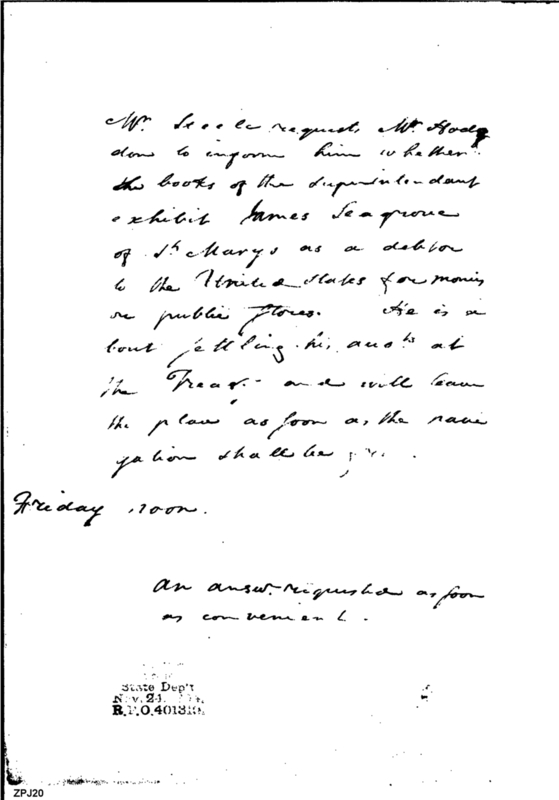 Mr. Steele requests Mr. Hodg
don to inform him whether
the books of the Superintendant
exhibit James Seagrove
of St. Marys as a debtor
to the United States for monies
or public stores. He is a
bout settling his accots at
the Treasy. and will leave
the place as soon as the navi
gation shall be
Friday noon.
An answr. requested as soon
as convenient.
State Dep't
R.P.O.
ZPJ20